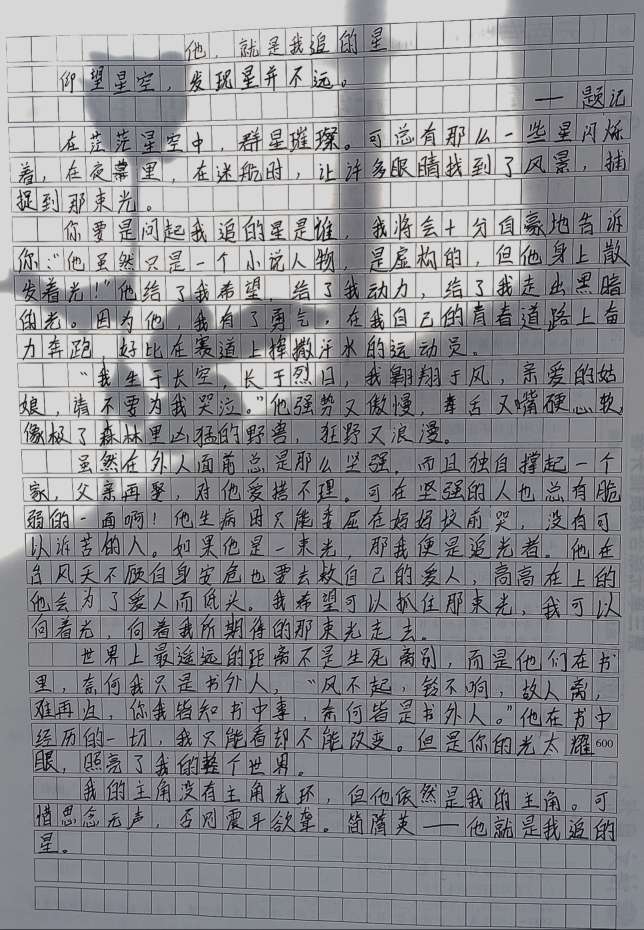 他，就是我追的星
仰望星空，发现星并不远。
——题记
在茫茫星空中，群星璀璨。可总有那么一些星闪烁
着，在夜幕里，在迷航时，让许多眼睛找到了风景，捕
捉到那束光。
你要是问起我追的星是谁，我将会十分自豪地告诉
你："他虽然只是一个小说人物，是虚构的，但他身上散
发着光！"他给了我希望，给了我动力，给了我走出黑暗
的光。因为他，我有了勇气，在我自己的青春道路上奋
力奔跑，好比在赛道上挥撒汗水的运动员。
"我生于长空，长于烈日，我翱翔于风，亲爱的姑
娘，请不要为我哭泣。"他强势又傲慢，毒舌又嘴硬心软，
像极了森林里凶猛的野兽，狂野又浪漫。
虽然在外人面前总是那么坚强，而且独自撑起一个
家，父亲再娶，对他爱搭不理。可在坚强的人也总有脆
弱的一面啊！他生病因只能委屈在妈妈坟前哭，没有可
以诉苦的人。如果他是一束光，那我便是追光者。他在
台风天不顾自身安危也要去救自己的爱人，高高在上的
他会为了爱人而低头。我希望可以抓住那束光，我可以
向着光，向着我所期待的那束光走去。
世界上最遥远的距离不是生死离别，而是他们在书
里，奈何我只是书外人，"风不起，铃不响，故人离，
难再归，你我皆知书中事，奈何皆是书外人。"他在书中
经历的一切，我只能看却不能改变。但是你的光太耀
600
眼，照亮了我的整个世界。
我的主角没有主角光环，但他依然是我的主角。可
惜思念无声，否则震耳欲聋。简隋英——他就是我追的
星。